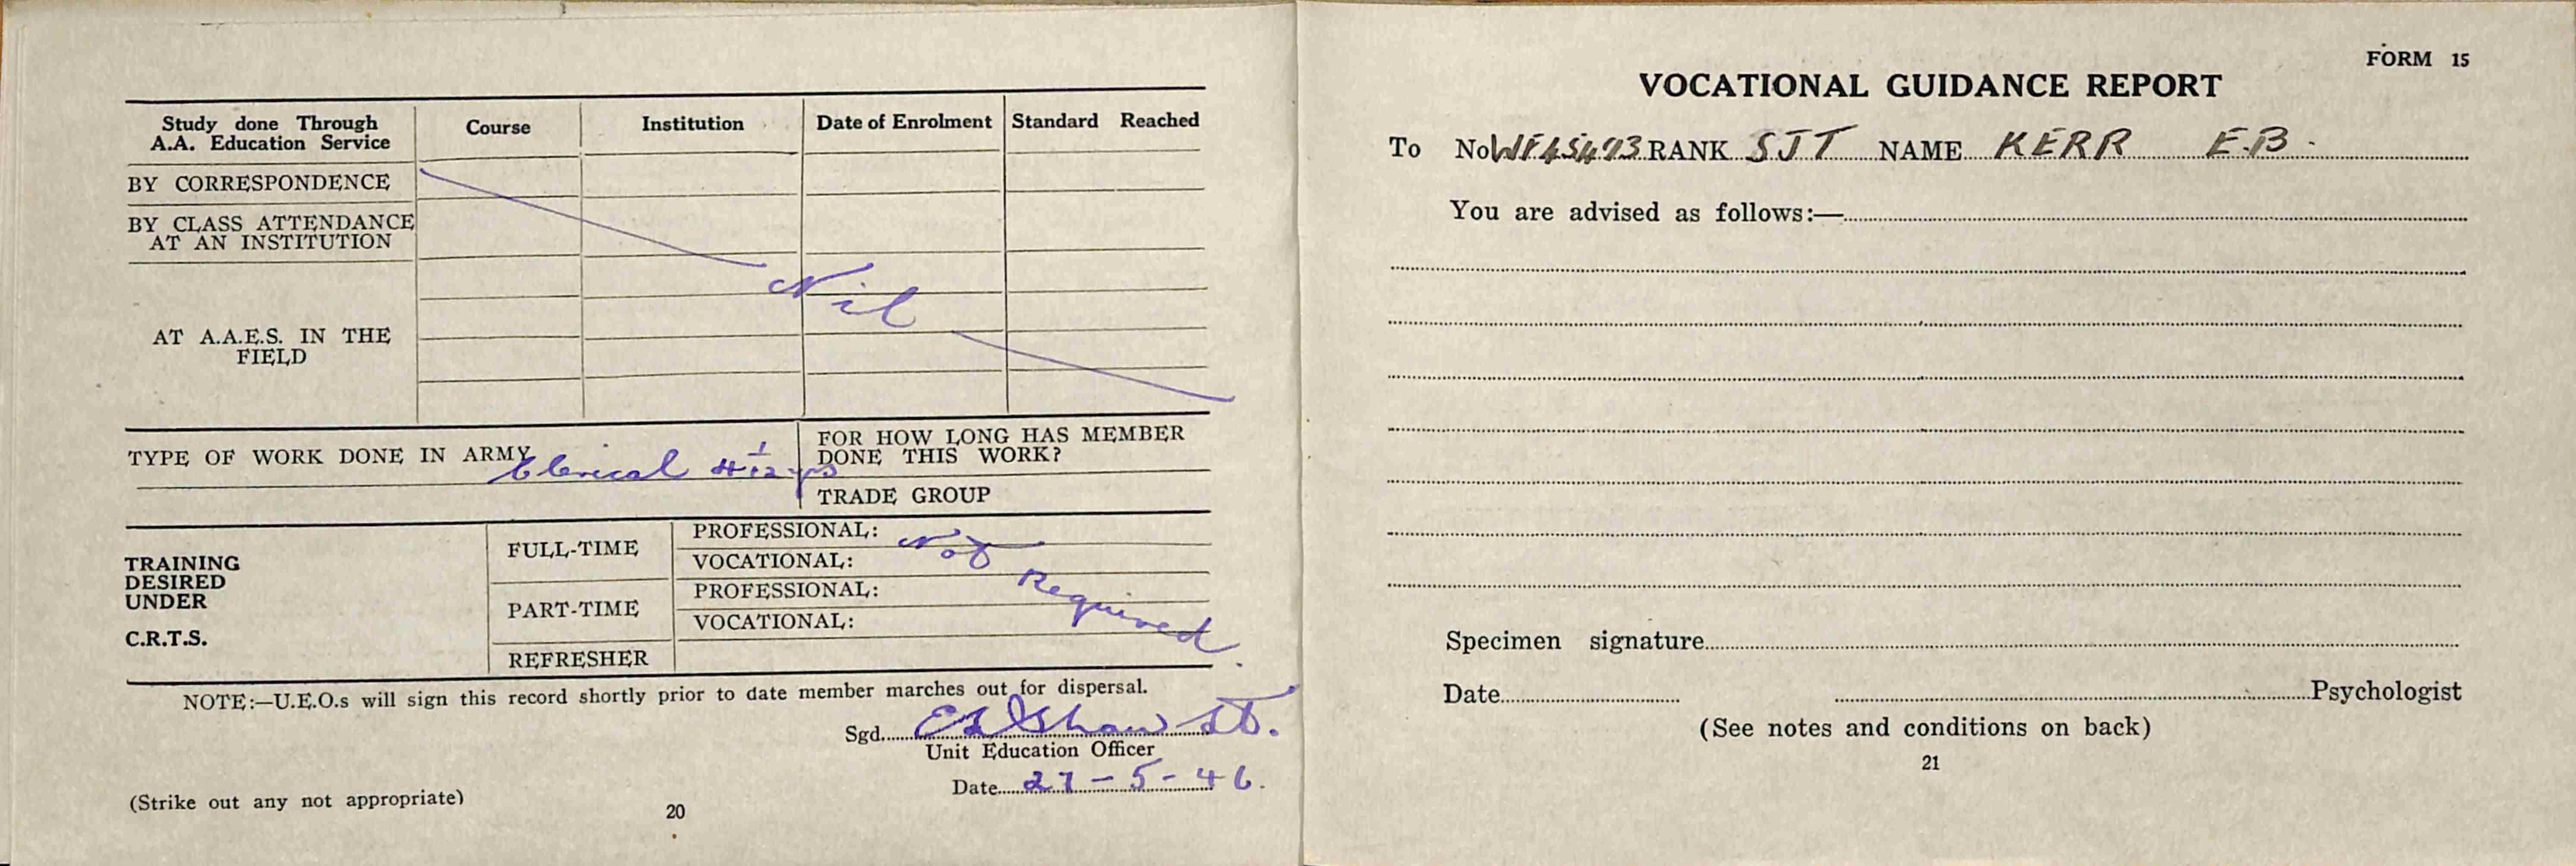 Study done Through
A.A. Education Service
Course
Institution
Date of Enrolment
Standard Reached
BY CORRESPONDENCE
BY CLASS ATTENDANCE
AT AN INSTITUTION
AT A.A.E.S. IN THE
FIELD
Nil
TYPE OF WORK DONE IN ARMY Clerical 4 1/12 yrs
FOR HOW LONG HAS MEMBER
DONE THIS WORK?
TRADE GROUP
TRAINING
DESIRED
UNDER
C.R.T.S.
FULL-TIME
PROFESSIONAL:
VOCATIONAL:
PART-TIME
PROFESSIONAL:
VOCATIONAL:
REFRESHER
Not
Required.
NOTE:—U.E.O.s will sign this record shortly prior to date member marches out for dispersal.
Sgd. Shaw Lt.
Unit Education Officer
Date 27-5-46.
(Strike out any not appropriate)
20
FORM 15
VOCATIONAL GUIDANCE REPORT
To No RANK SJT NAME KERR E.B.
You are advised as follows:—
Specimen signature
Date Psychologist
(See notes and conditions on back)
21